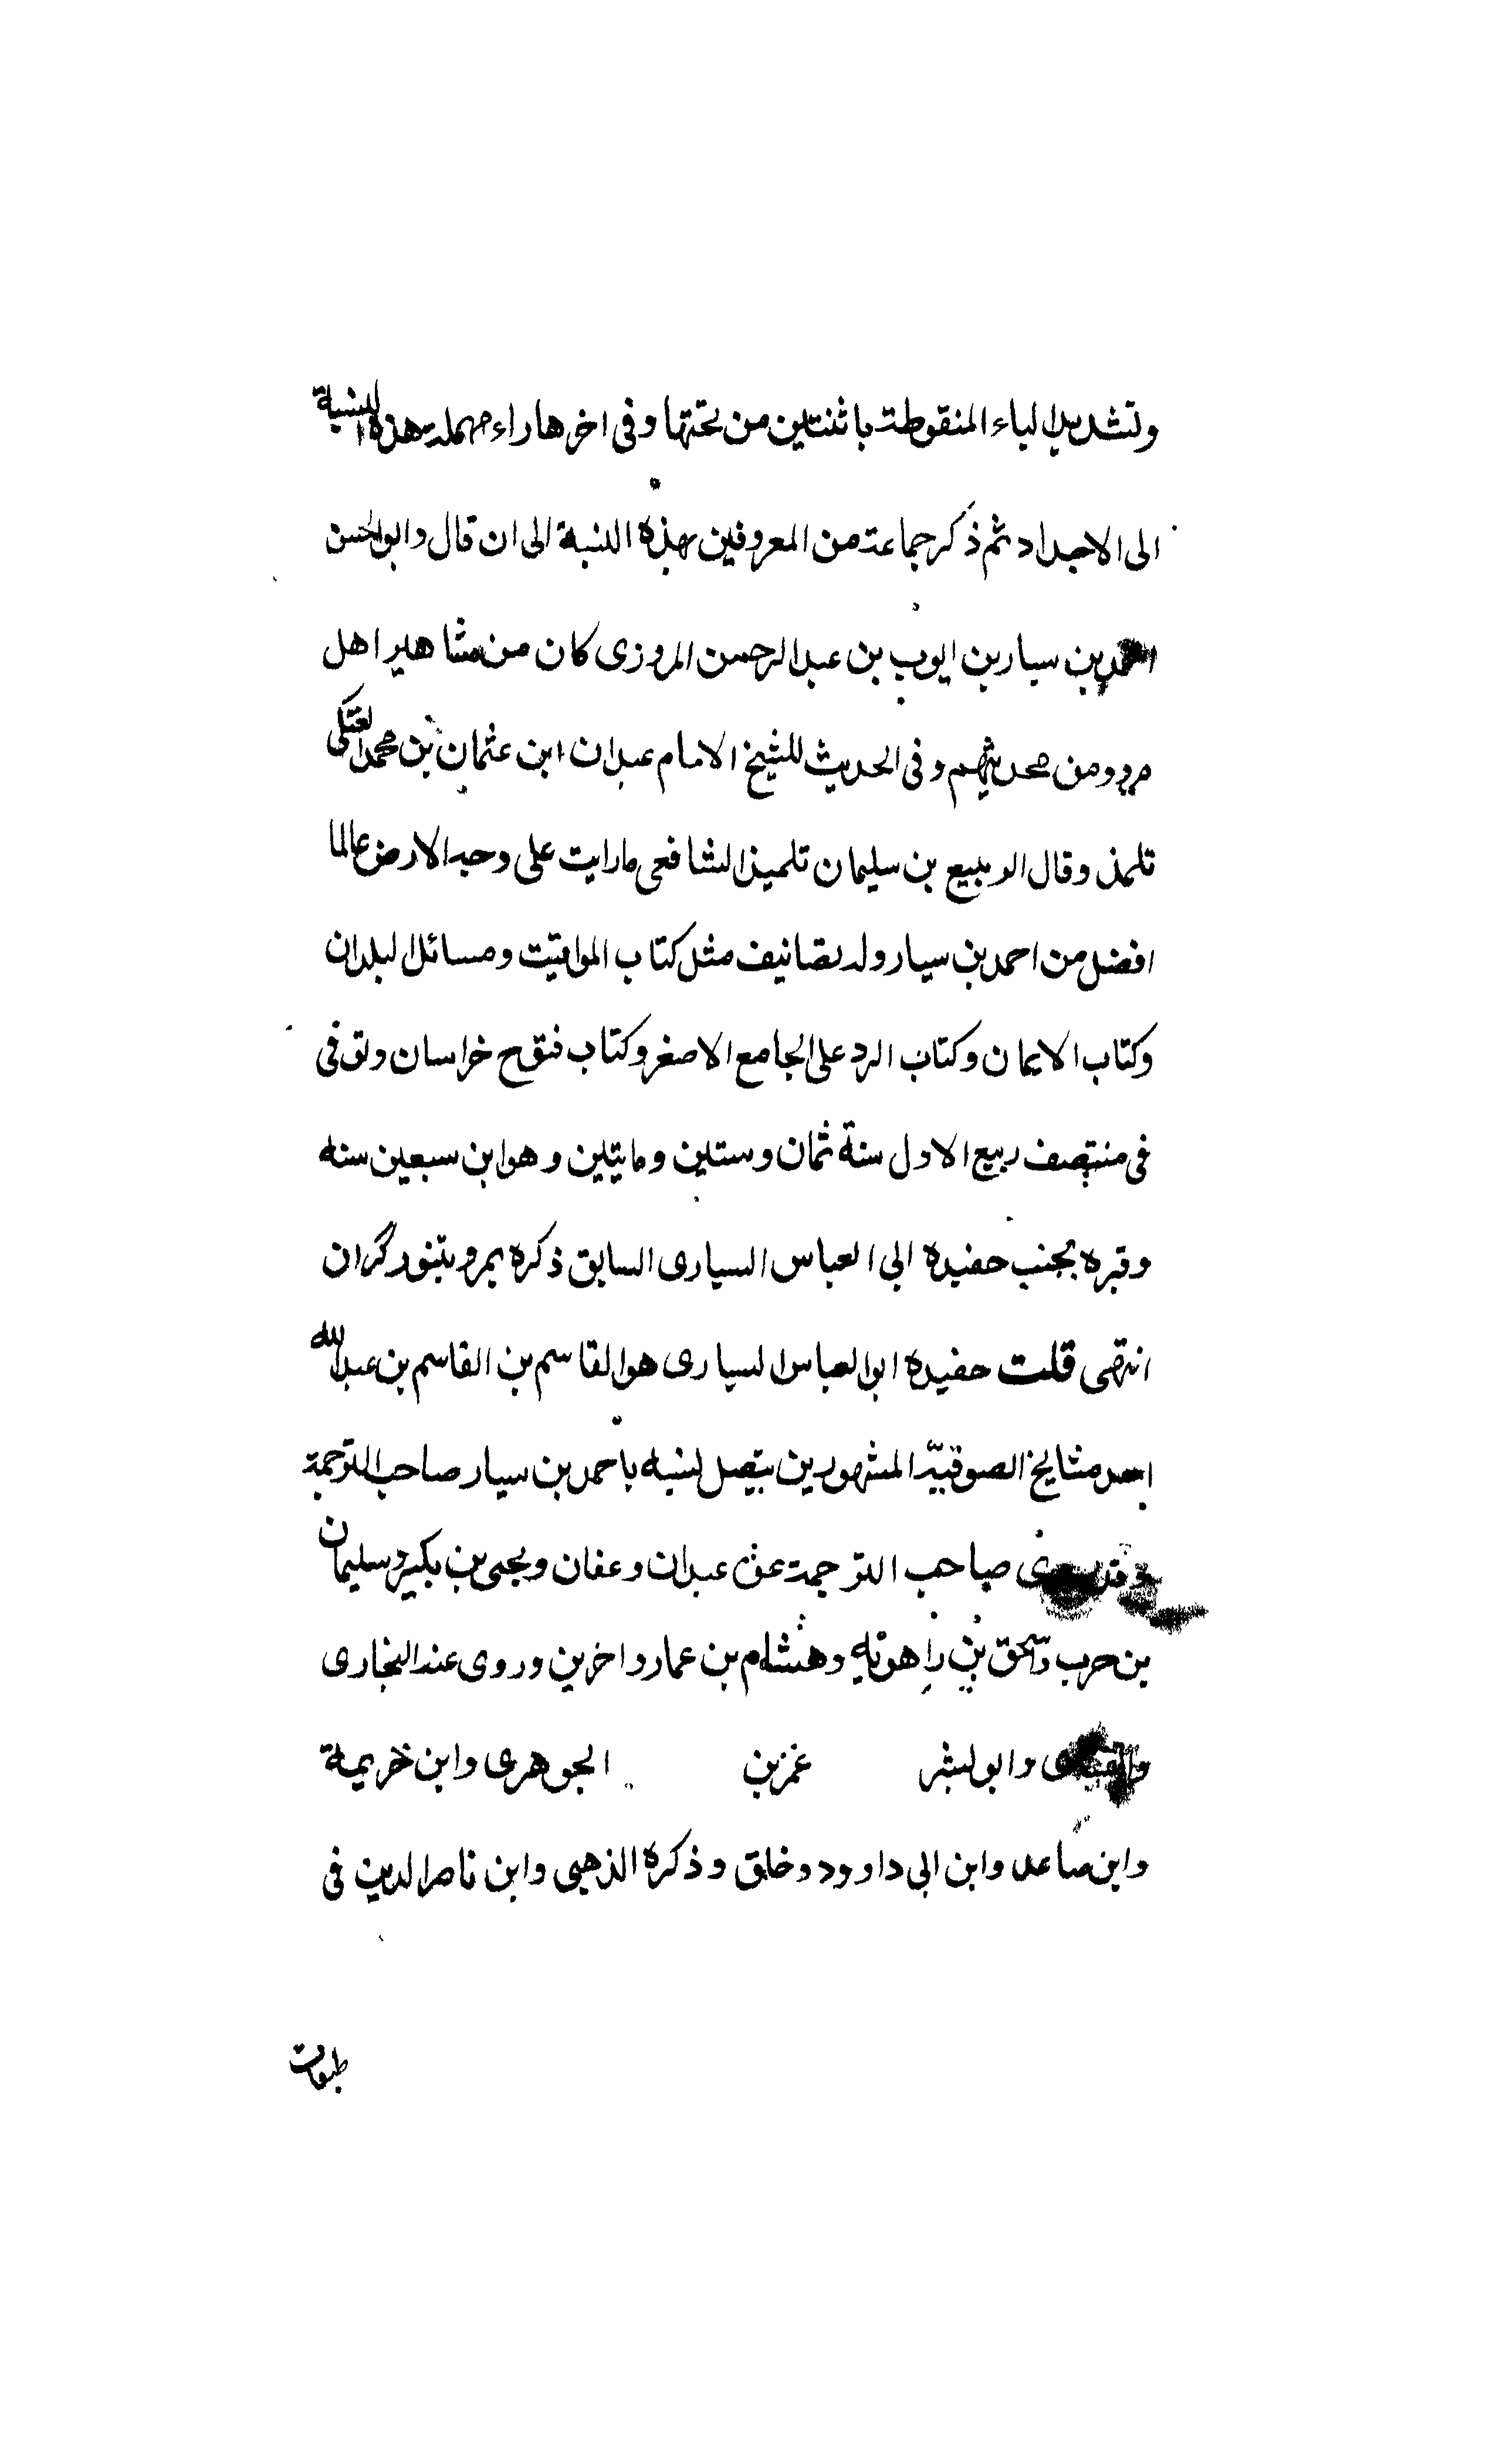 وتشديد الياء المنقوطة باثنتين من تحتها وفى اخرها راء مهملة هذه النسبة
الى الاجداد ثم ذكر جماعة من المعروفين بهذه النسبة الى ان قال وابو الحسن
احمد بن سيار بن ايوب بن عبد الرحمن المروزى كان من مشاهير اهل
مرو ومن محدثيهم وفى الحديث للشيخ الامام عبدان ابن عثمان بن محمد العتكى
تلمذ وقال الربيع بن سليمان تلميذ الشافعى ما رايت على وجه الارض عالما
افضل من احمد بن سيار وله تصانيف مثل كتاب المواقيت ومسائل البلدان
وكتاب الايمان وكتاب الرد على الجامع الاصغر وكتاب فتوح خراسان وتوفى
فى منتصف ربيع الاول سنة ثمان وستين ومايتين وهو ابن سبعين سنه
وقبره بجنب حفيده ابى العباس السيارى السابق ذكره بمرو بتنور كران
انتهى قلت حفيده ابو العباس السيارى هو القاسم بن القاسم بن عبد الله
احد مشايخ الصوقية المشهورين يتصل نسبه باحمد بن سيار صاحب الترجمة
وقد روى صاحب الترجمة عن عبدان وعفان ويحيى بن بكير وسليمان
بن حرب واسحق بن راهويه وهشام بن عمار واخرين وروى عنه البخارى
وابو بشر عمر بن الجوهرى وابن خريمة
وابن صاعد وابن ابى داوود وخلق وذكره الذهبى وابن ناصر الدين فى
طبقات